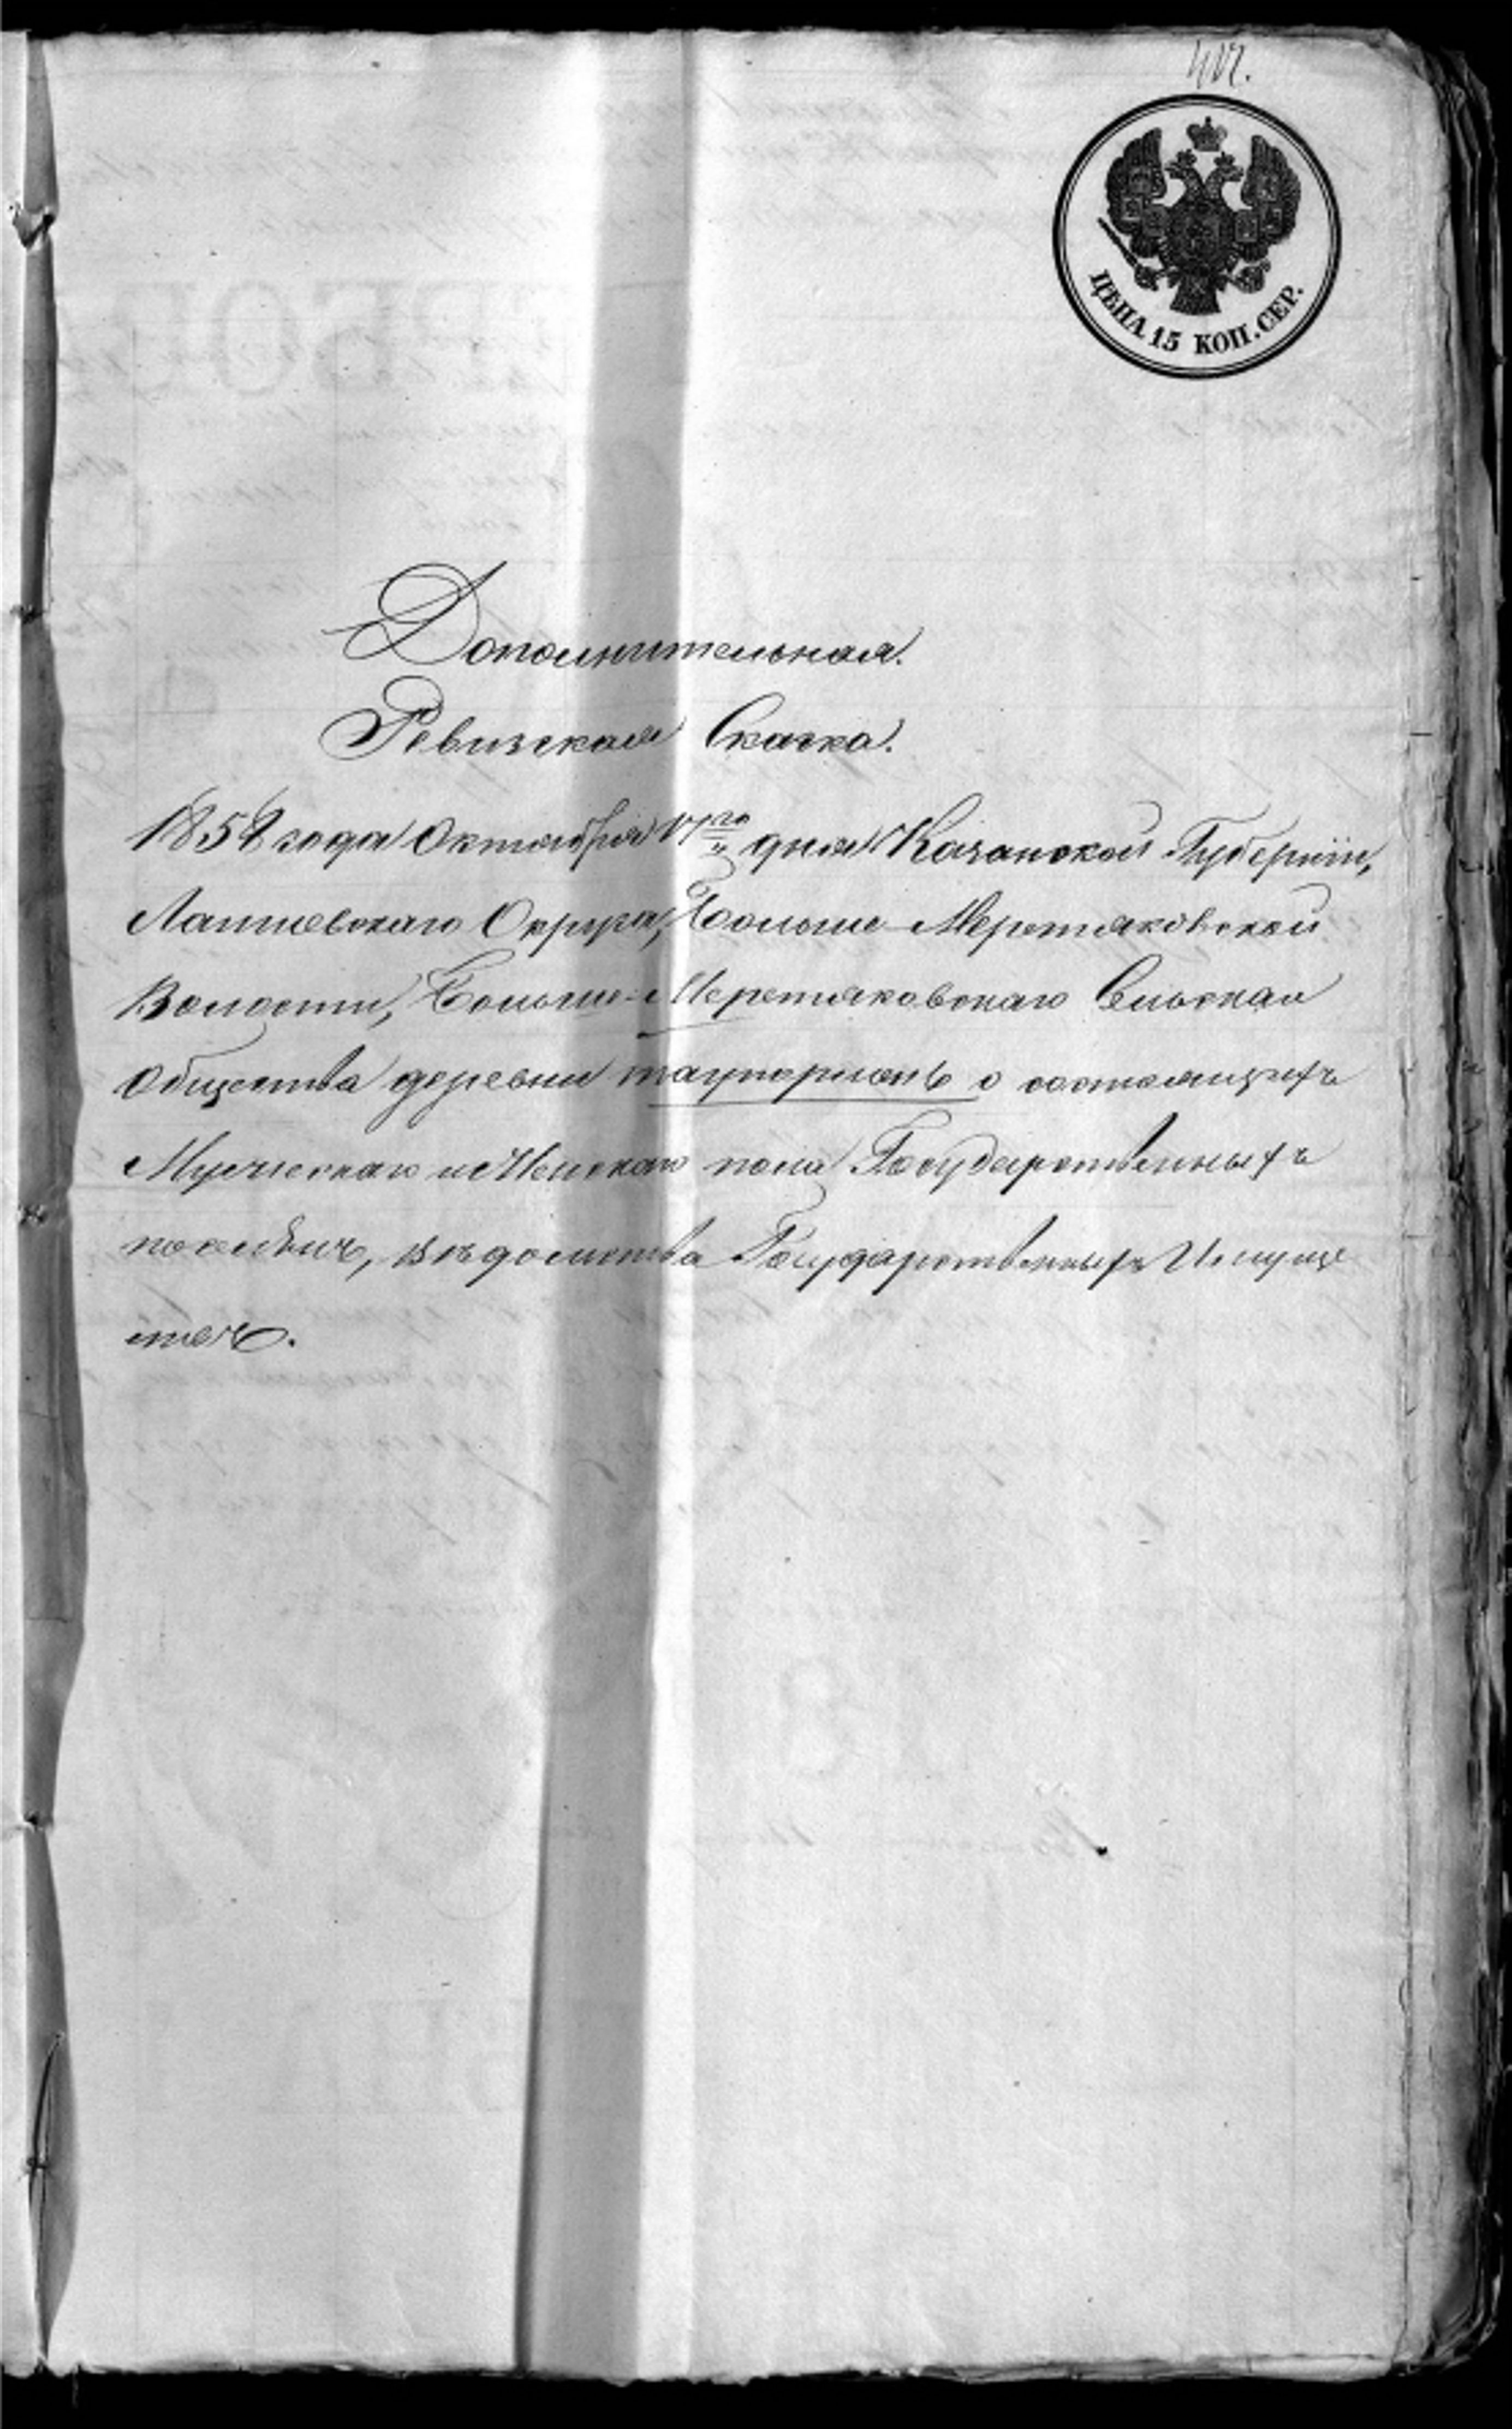 ЦѢНА 15 КОП. СЕР.
Дополнительная.
Ревизская Сказка.
1858 года Октября 17го дня Казанской Губернiи,
Лаишевскаго Округа, Больше-Меретяковской
Волости, Больше-Меретяковскаго Сельскаго
Общества деревни о состоящихъ
Мужескаго и Женскаго пола Государственныхъ
поселянъ, Вѣдомства Государственныхъ Имуще
ствъ.